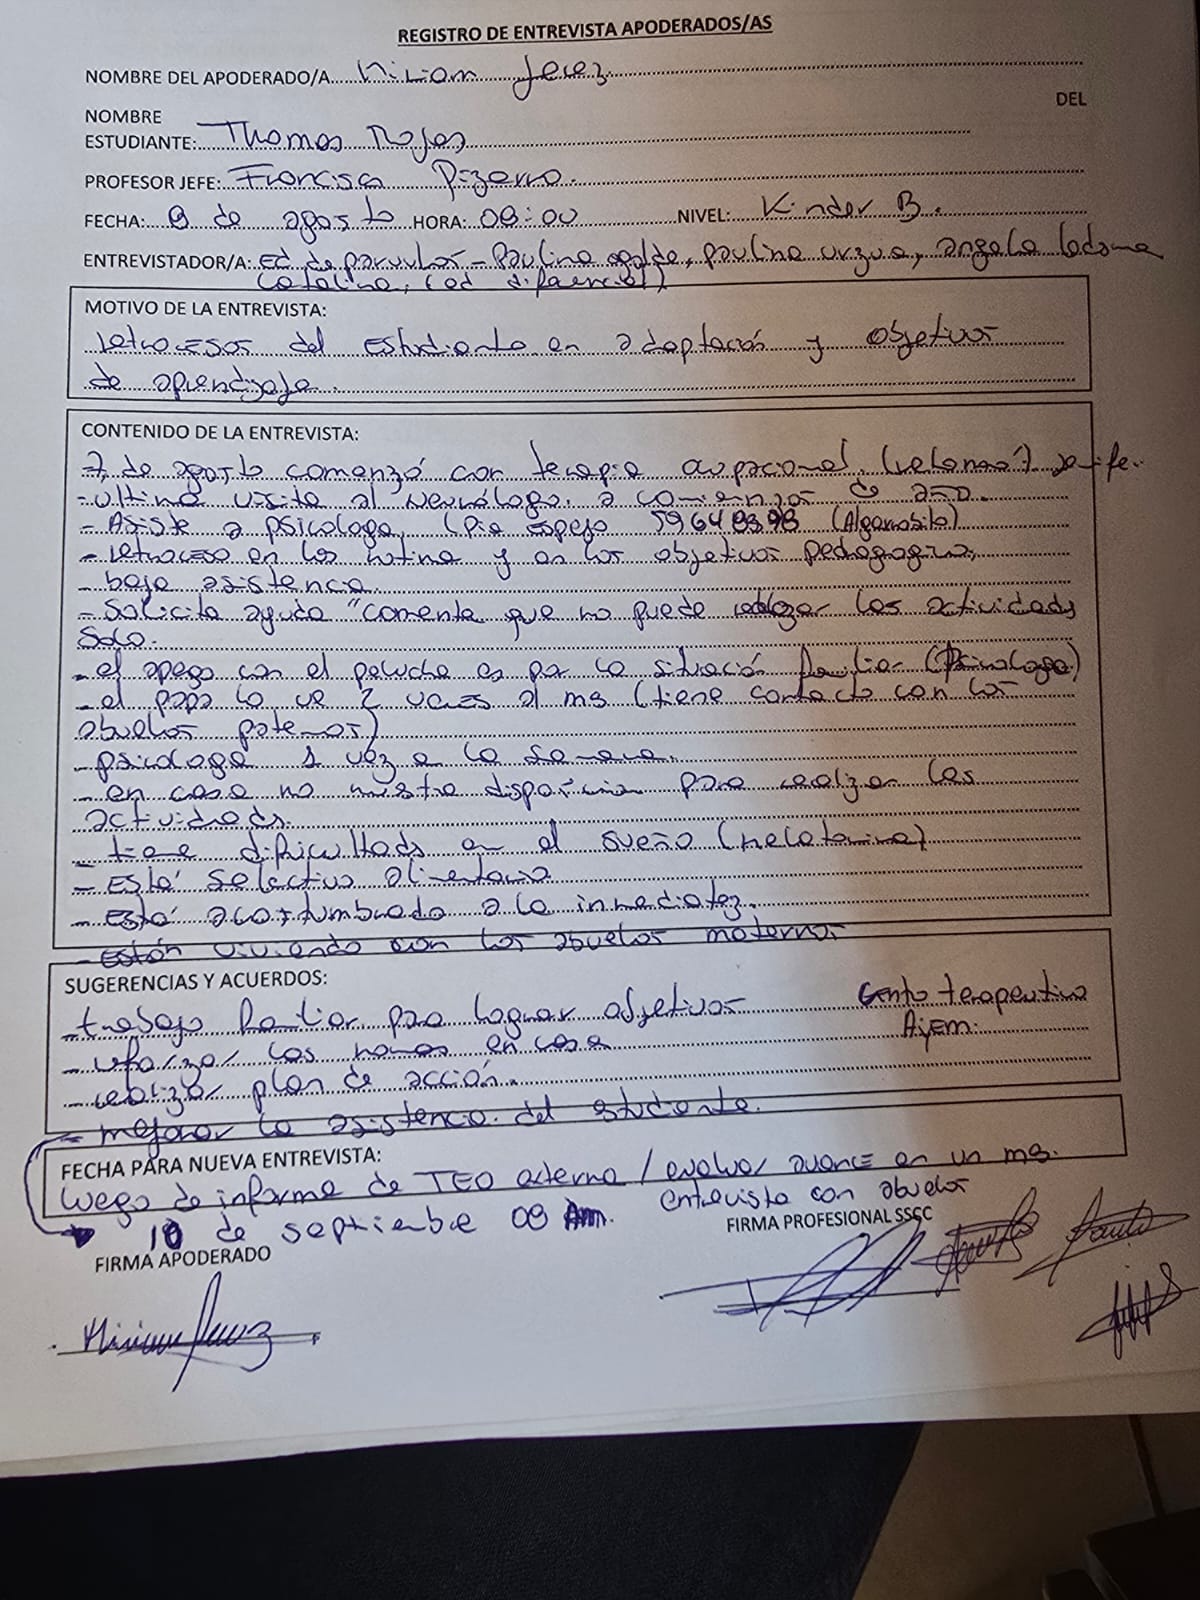 REGISTRO DE ENTREVISTA APODERADOS/AS
NOMBRE DEL APODERADO/A Miriam Jerez
DEL
NOMBRE
ESTUDIANTE: Thomas Rojas
PROFESOR JEFE: Francisca Pizarro.
FECHA: 8 de agosto HORA: 08:00 NIVEL: Kinder B.
ENTREVISTADOR/A: Ed. de parvulos - Paulina, paulina urzua, angela ledesma
Catalina, (ed. diferencial)
MOTIVO DE LA ENTREVISTA:
retrocesos del estudiante en adaptación y objetivos
de aprendizaje.
CONTENIDO DE LA ENTREVISTA:
7 de agosto comenzó con terapia ocupacional.
- ultima visita al Neurólogo. a comienzos de año.
- Asiste a psicologa, (Pia Espejo 59648398 (Algarrobito)
- retroceso en las rutina y en los objetivos pedagogicos,
- baja asistencia.
- Solicita ayuda "comenta que no puede realizar las actividads
Solo.
- el apego con el peluche es por la situación familiar (Psicologa)
- el papá lo ve 2 veces al mes (tiene contacto con los
abuelos paternos)
- psicologa 1 vez a la semana.
- en casa no muestra disposición para realizar las
actividads.
- tiene dificultads en el sueño (melatonina)
- Está selectivo alimentario
- Está acostumbrado a la inmediatez.
- Están viviendo con los abuelos maternos
SUGERENCIAS Y ACUERDOS:
- trabajo familiar para lograr objetivos Cento terapeutico
- reforzar las normas en casa Ayem.
- realizar plan de acción.
- mejorar la asistencia. del estudiante.
FECHA PARA NUEVA ENTREVISTA:
luego de informe de TEO externa / evaluar avance en un mes.
10 de septiembre 08 Am. entrevista con abuelos
FIRMA APODERADO FIRMA PROFESIONAL SSCC
Miriam Jerez